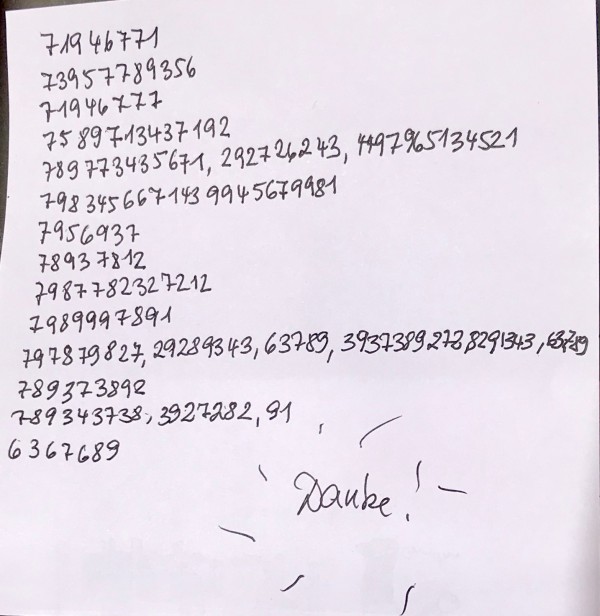 71946771
73957789356
71946777
7589713437192
789773435671, 292726243, 4497965134521
7983456671439945679981
7956937
78937812
7987782327212
7989997891
797879827, 29289343, 63789, 39373892738291343, 63789
789373892
789343738, 3927282, 91
6367689
Danke!